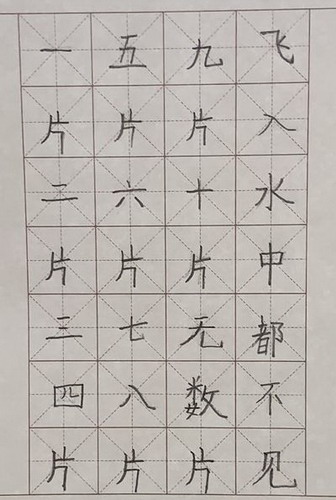 一片二片三四片
五片六片七八片
九片十片无数片
飞入水中都不见